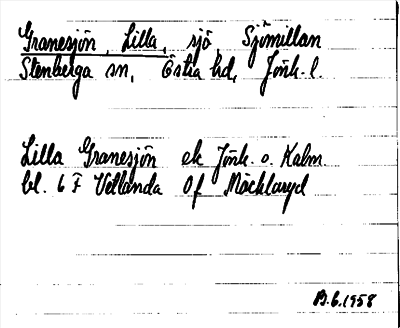 Granesjön, Lilla, sjö, Sjömillan
Stenberga sn, Östra hd, Jönk. l.
Lilla Granesjön ek Jönk. o. Kalm.
bl. 6 F Vetlanda Of Möcklaryd
B.6.1958